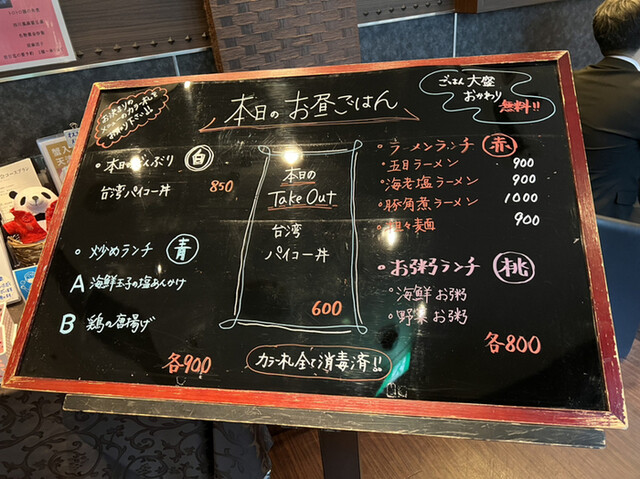 本日のお昼ごはん
ごはん大盛
おかわり
無料!!
・本日のどんぶり 白
台湾パイコー丼 850
・炒めランチ 青
A 海鮮玉子の塩あんかけ
B 鶏の唐揚げ
各900
本日の
Take Out
台湾
パイコー丼
600
カラー札全て消毒済!!
・ラーメンランチ 赤
・五目ラーメン 900
・海老塩ラーメン 900
・豚角煮ラーメン 1000
・担々麺 900
・お粥ランチ 桃
・海鮮お粥
・野菜お粥
各800